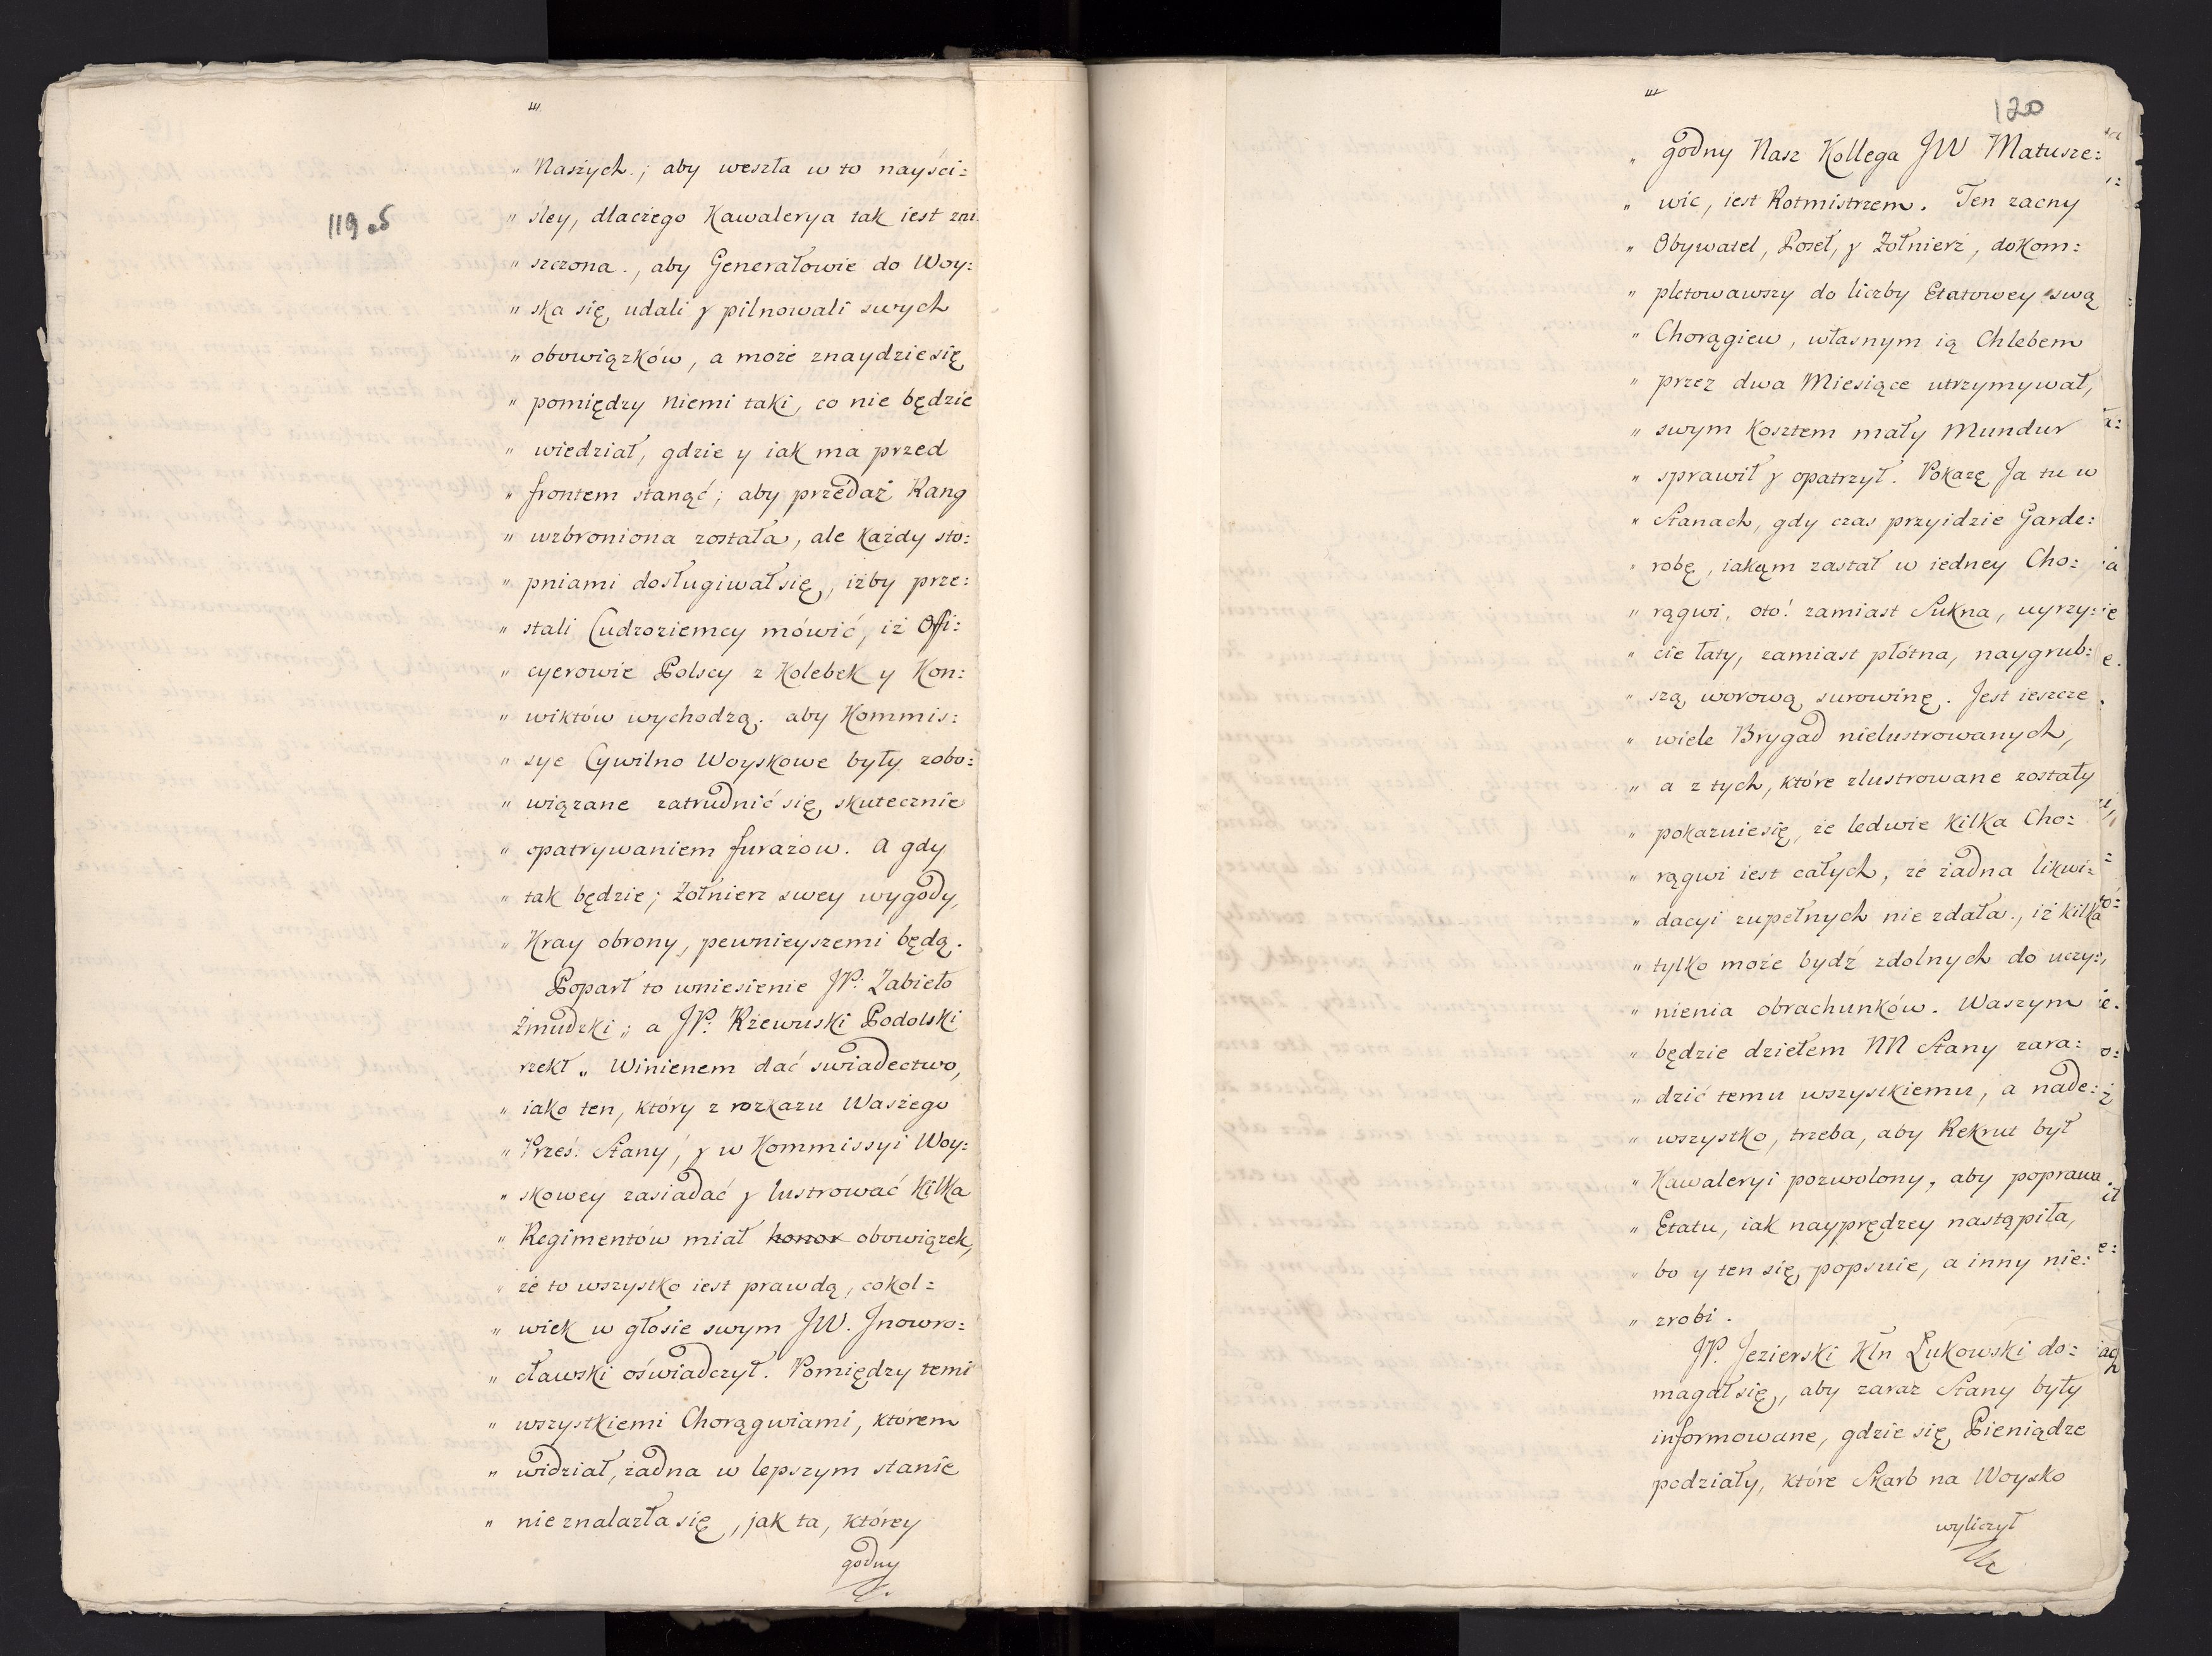 „ Naszych ; aby weszła w to nayści=
119.5
„ śley, dlaczego Kawalerya tak iest zni
„ szczona ., aby Generałowie do Woy=
„ ska się, udali y pilnowali swych
„ obowiązków, a może znaydzie się
„ pomiędzy niemi taki, co nie będzie
„ wiedział, gdzie y iak ma przed
„ frontem stanąć; aby przedaż Rang
„ wzbroniona została, ale każdy sto=
„ pniami dosługiwał się, iżby prze=
„ stali Cudzoziemcy mówić, iż Offi=
„ cyerowie Polscy z Kolebek y Kon=
„ wiktów wychodzą. aby Kommis=
„ sye Cywilno Woyskowe były zobo=
„ wiązane zatrudnić się, skutecznie
„ opatrywaniem furażow. A gdy
„ tak będzie; Żołnierz swey wygody,
„ Kray obrony, pewnieyszemi będą.
Popart to wniesienie JP: Zabiełło
Zmudzki; a JP: Rzewuski Podolski
rzekł „ Winienem dać swiadectwo,
„ iako ten, który z rozkazu Waszego
„ Prześ: Stany, y w Kommissyi Woy=
„ skowey zasiadać y lustrować kilka
„ Regimentów miał honor obowiązek,
„ że to wszystko iest prawdą, cokol=
„ wiek w głosie swym JW. Jnowro=
„ cławski oświadczył. Pomiędzy temi
„ wszystkiemi Chorągwiami, którem
„ widział, żadna w lepszym stanie
„ nie znalazła się, jak ta, którey
godny
120
„ godny Nasz Kollega JW Matusze=
„ wic, iest Rotmistrzem. Ten zacny
„ Obywatel, Poseł, y Żołnierz, dokom=
„ pletowawszy do liczby Etatowey swą
„ Chorągiew, własnym ią Chlebem
„ przez dwa Miesiące utrzymywał,
„ swym Kosztem mały Mundur
„ sprawił y opatrzył. Pokażę Ja tu w
„ Stanach, gdy czas przyidzie Garde=
„ robę, iakąm zastał w iedney Cho=
„ rągwi, oto! zamiast Sukna, uyrzy=
„ cie łaty, zamiast płótna, naygrub=
„ szą, worową surowinę. Jest ieszcze
„ wiele Brygad nielustrowanych,
„ a z tych, które zlustrowane zostały
„ pokazuie się, że ledwie kilka Cho=
„ rągwi iest całych, że żadna likwi=
„ dacyi zupełnych nie zdała., iż kilka
„ tylko może bydź zdolnych do uczy=
„ nienia obrachunków. Waszym
„ będzie dziełem NN Stany zara=
„ dzić temu wszystkiemu, a nade=
„ wszystko, trzeba, aby Rekrut był
„ Kawaleryi pozwolony, aby poprawa
„ Etatu, iak nayprędzey nastąpiła,
„ bo y ten się, popsuie, a inny nie=
„ zrobi.
JP. Jezierski Kłn Łukowski do=
magał się, aby zaraz Stany były
informowane, gdzie się, Pieniądze
podziały, które Skarb na Woysko
wyliczył